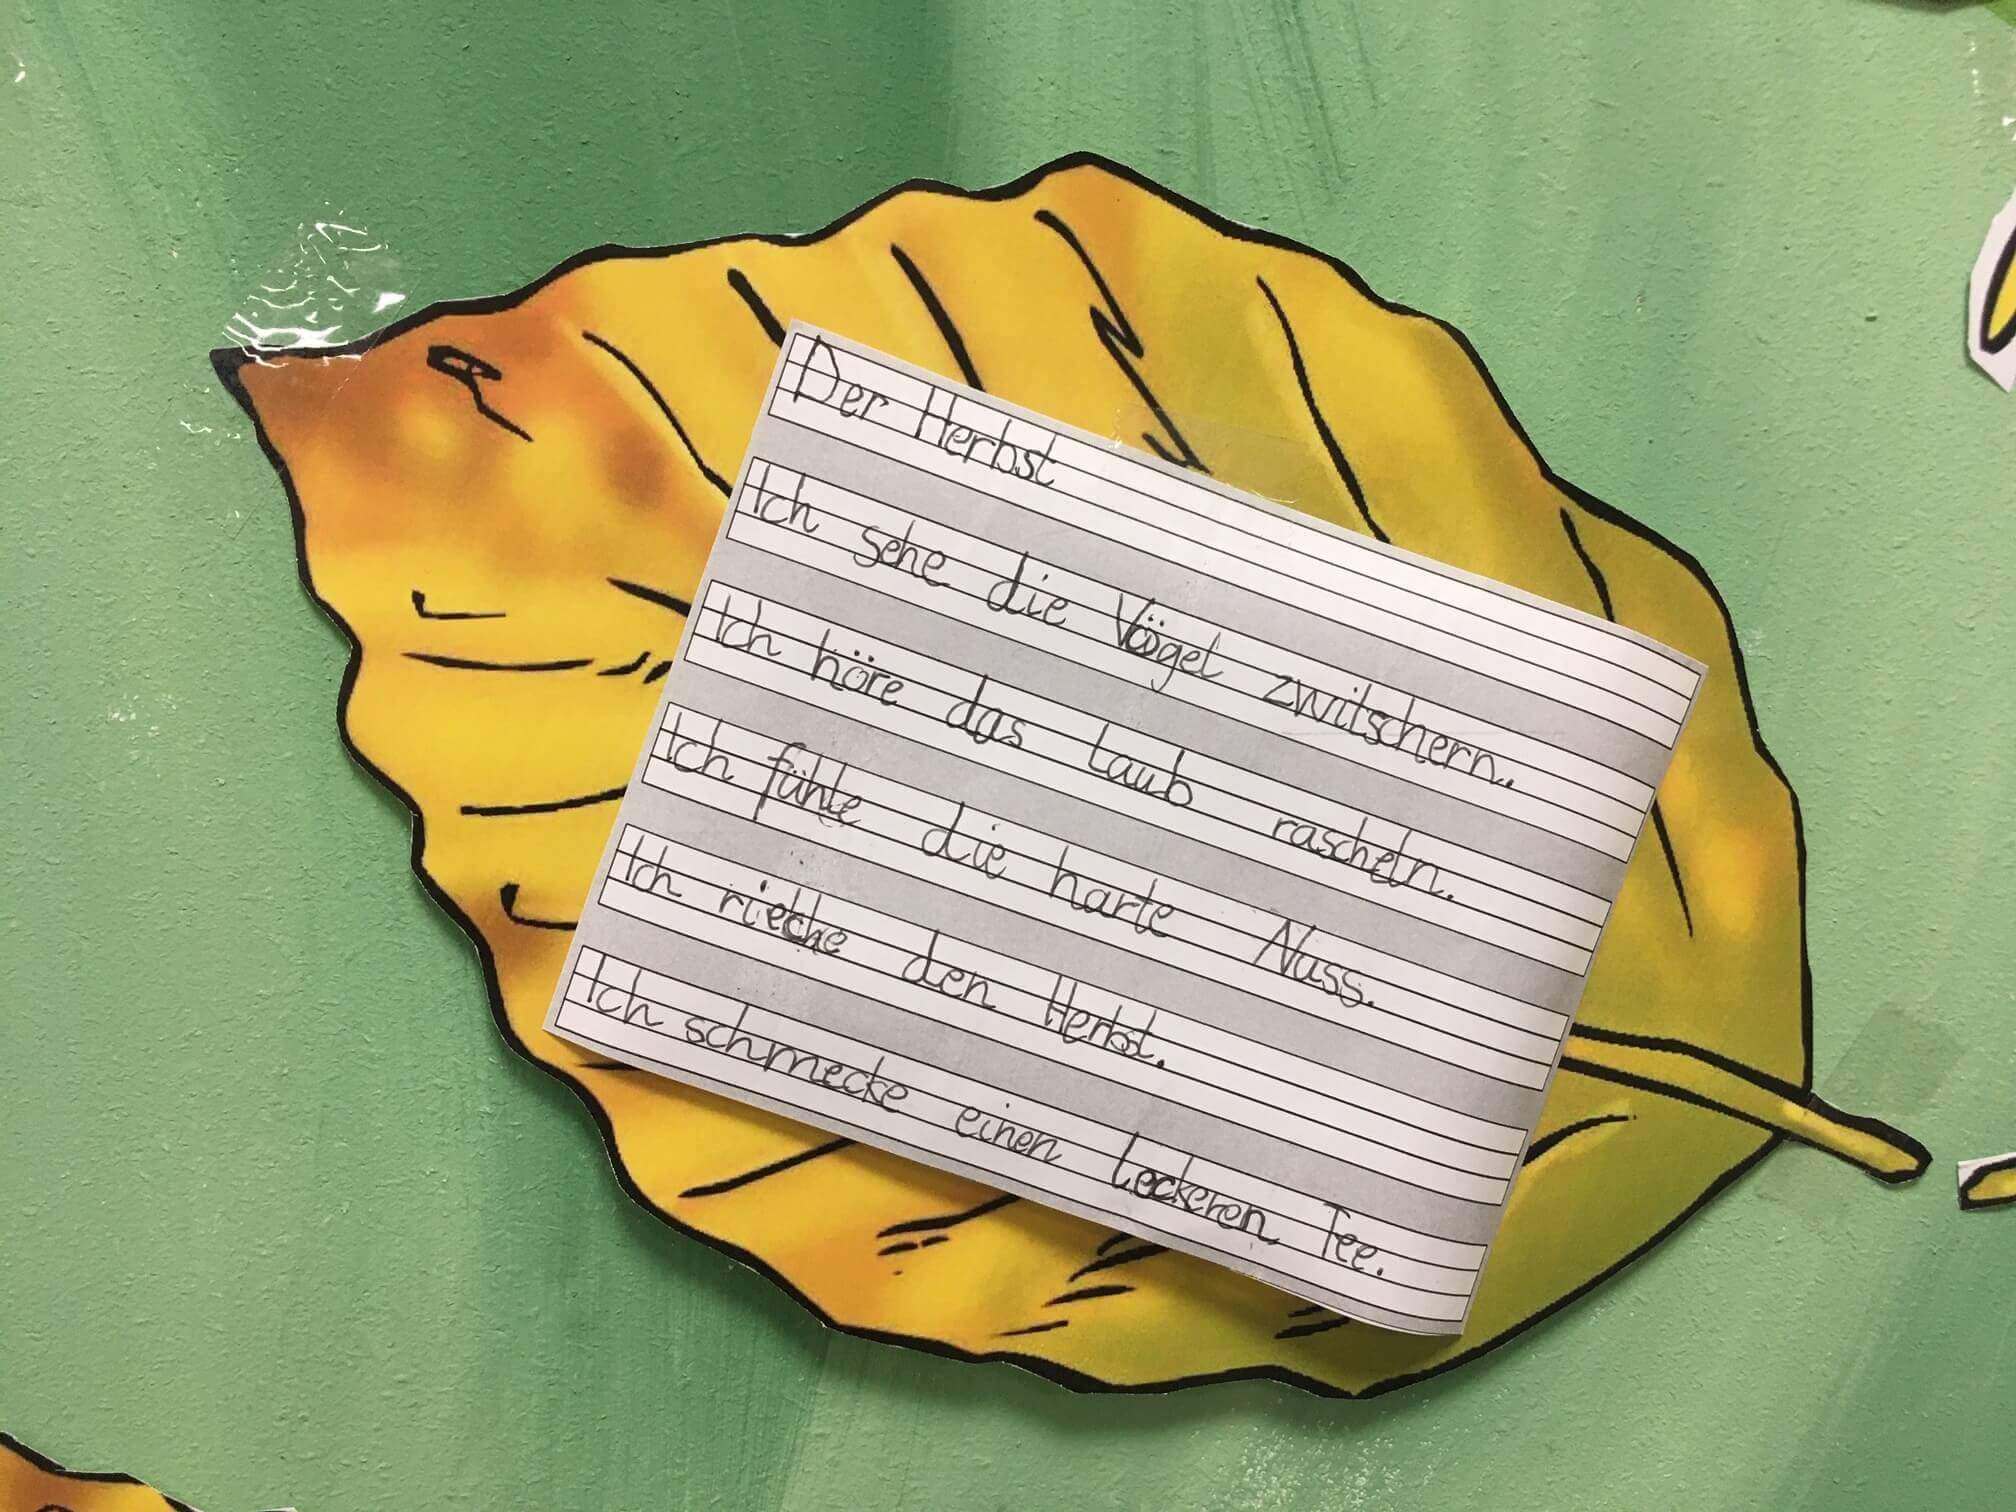 Der Herbst
Ich sehe die Vögel zwitschern..
Ich höre das Laub rascheln.
Ich fühle die harte Nuss.
Ich rieche den Herbst.
Ich schmecke einen leckeren Tee.